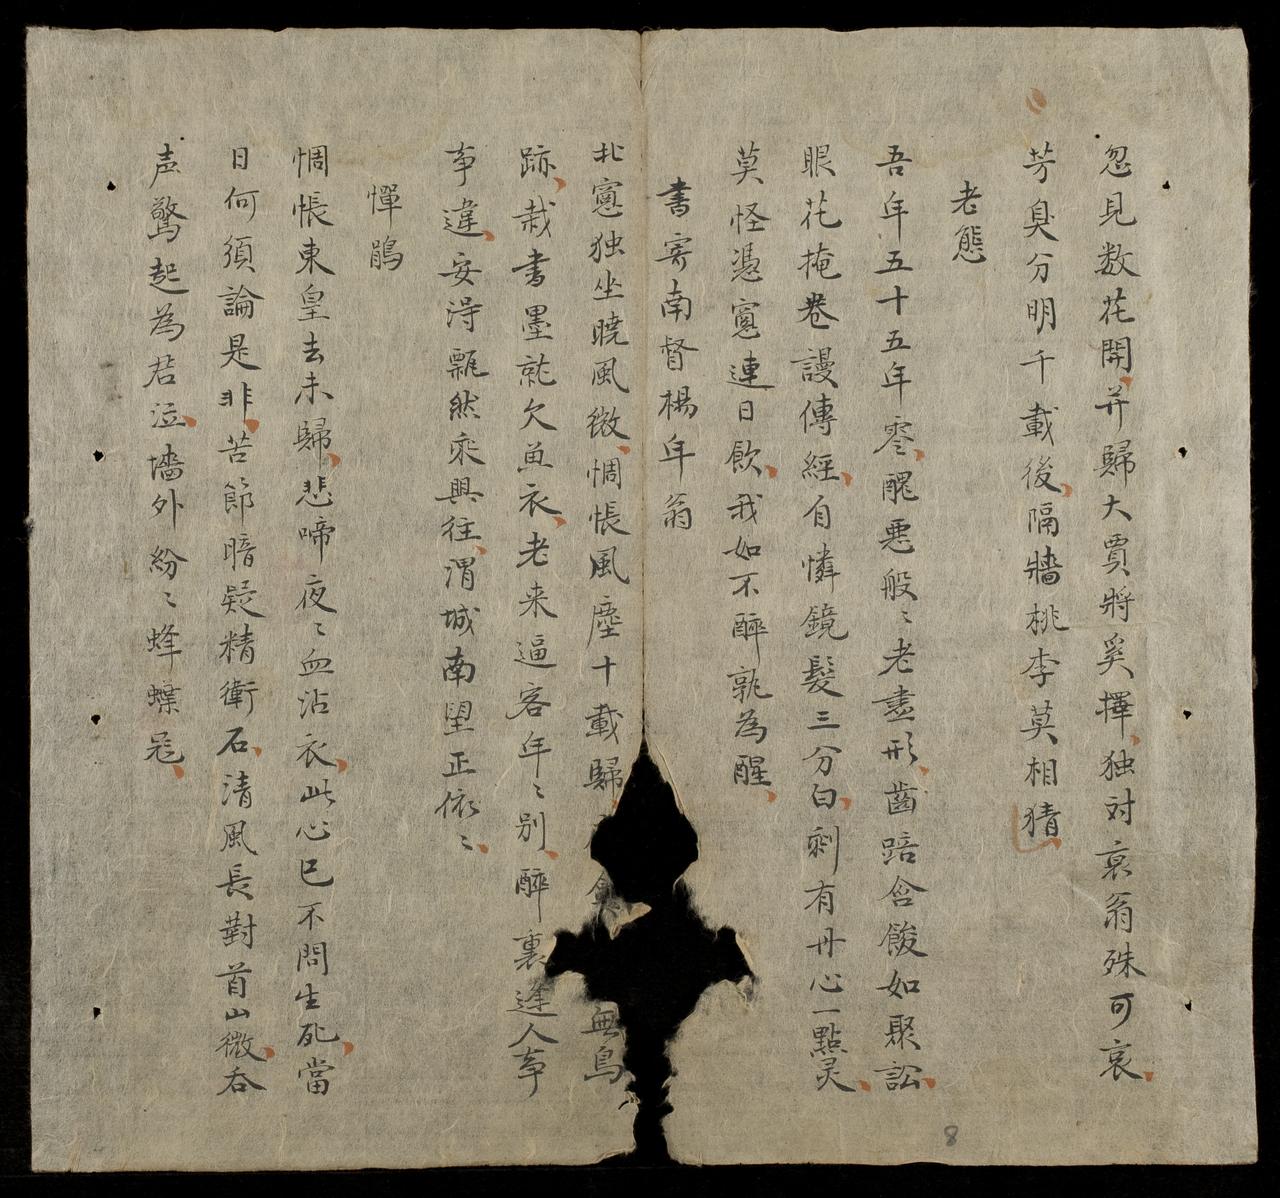 忽見数花開并歸大賈將奚擇独对哀翁殊可哀
芳臭分明千載後隔牆桃李莫相猜
老態
吾年五十五年零醜悪般〻老盡形齒踣含餕如聚訟
眼花掩巻謾傳經自憐鏡髮三分白剩有丹心一點灵
莫怪憑窻連日飲我如不醉孰為醒
書寄南督楊年翁
北窻独坐曉風微惆悵風塵十載歸無鳥
跡栽書墨就欠魚衣老来逼客年〻别醉裏逢人亊
亊違安淂瓢然乘興往渭城南望正依〻
憚鵑
惆悵東皇去未歸悲啼夜〻血沾衣此心已不問生死當
日何須論是非苦節暗疑精衛石清風長對首山微吞
声驚起為君泣墻外紛〻蜂蝶
8